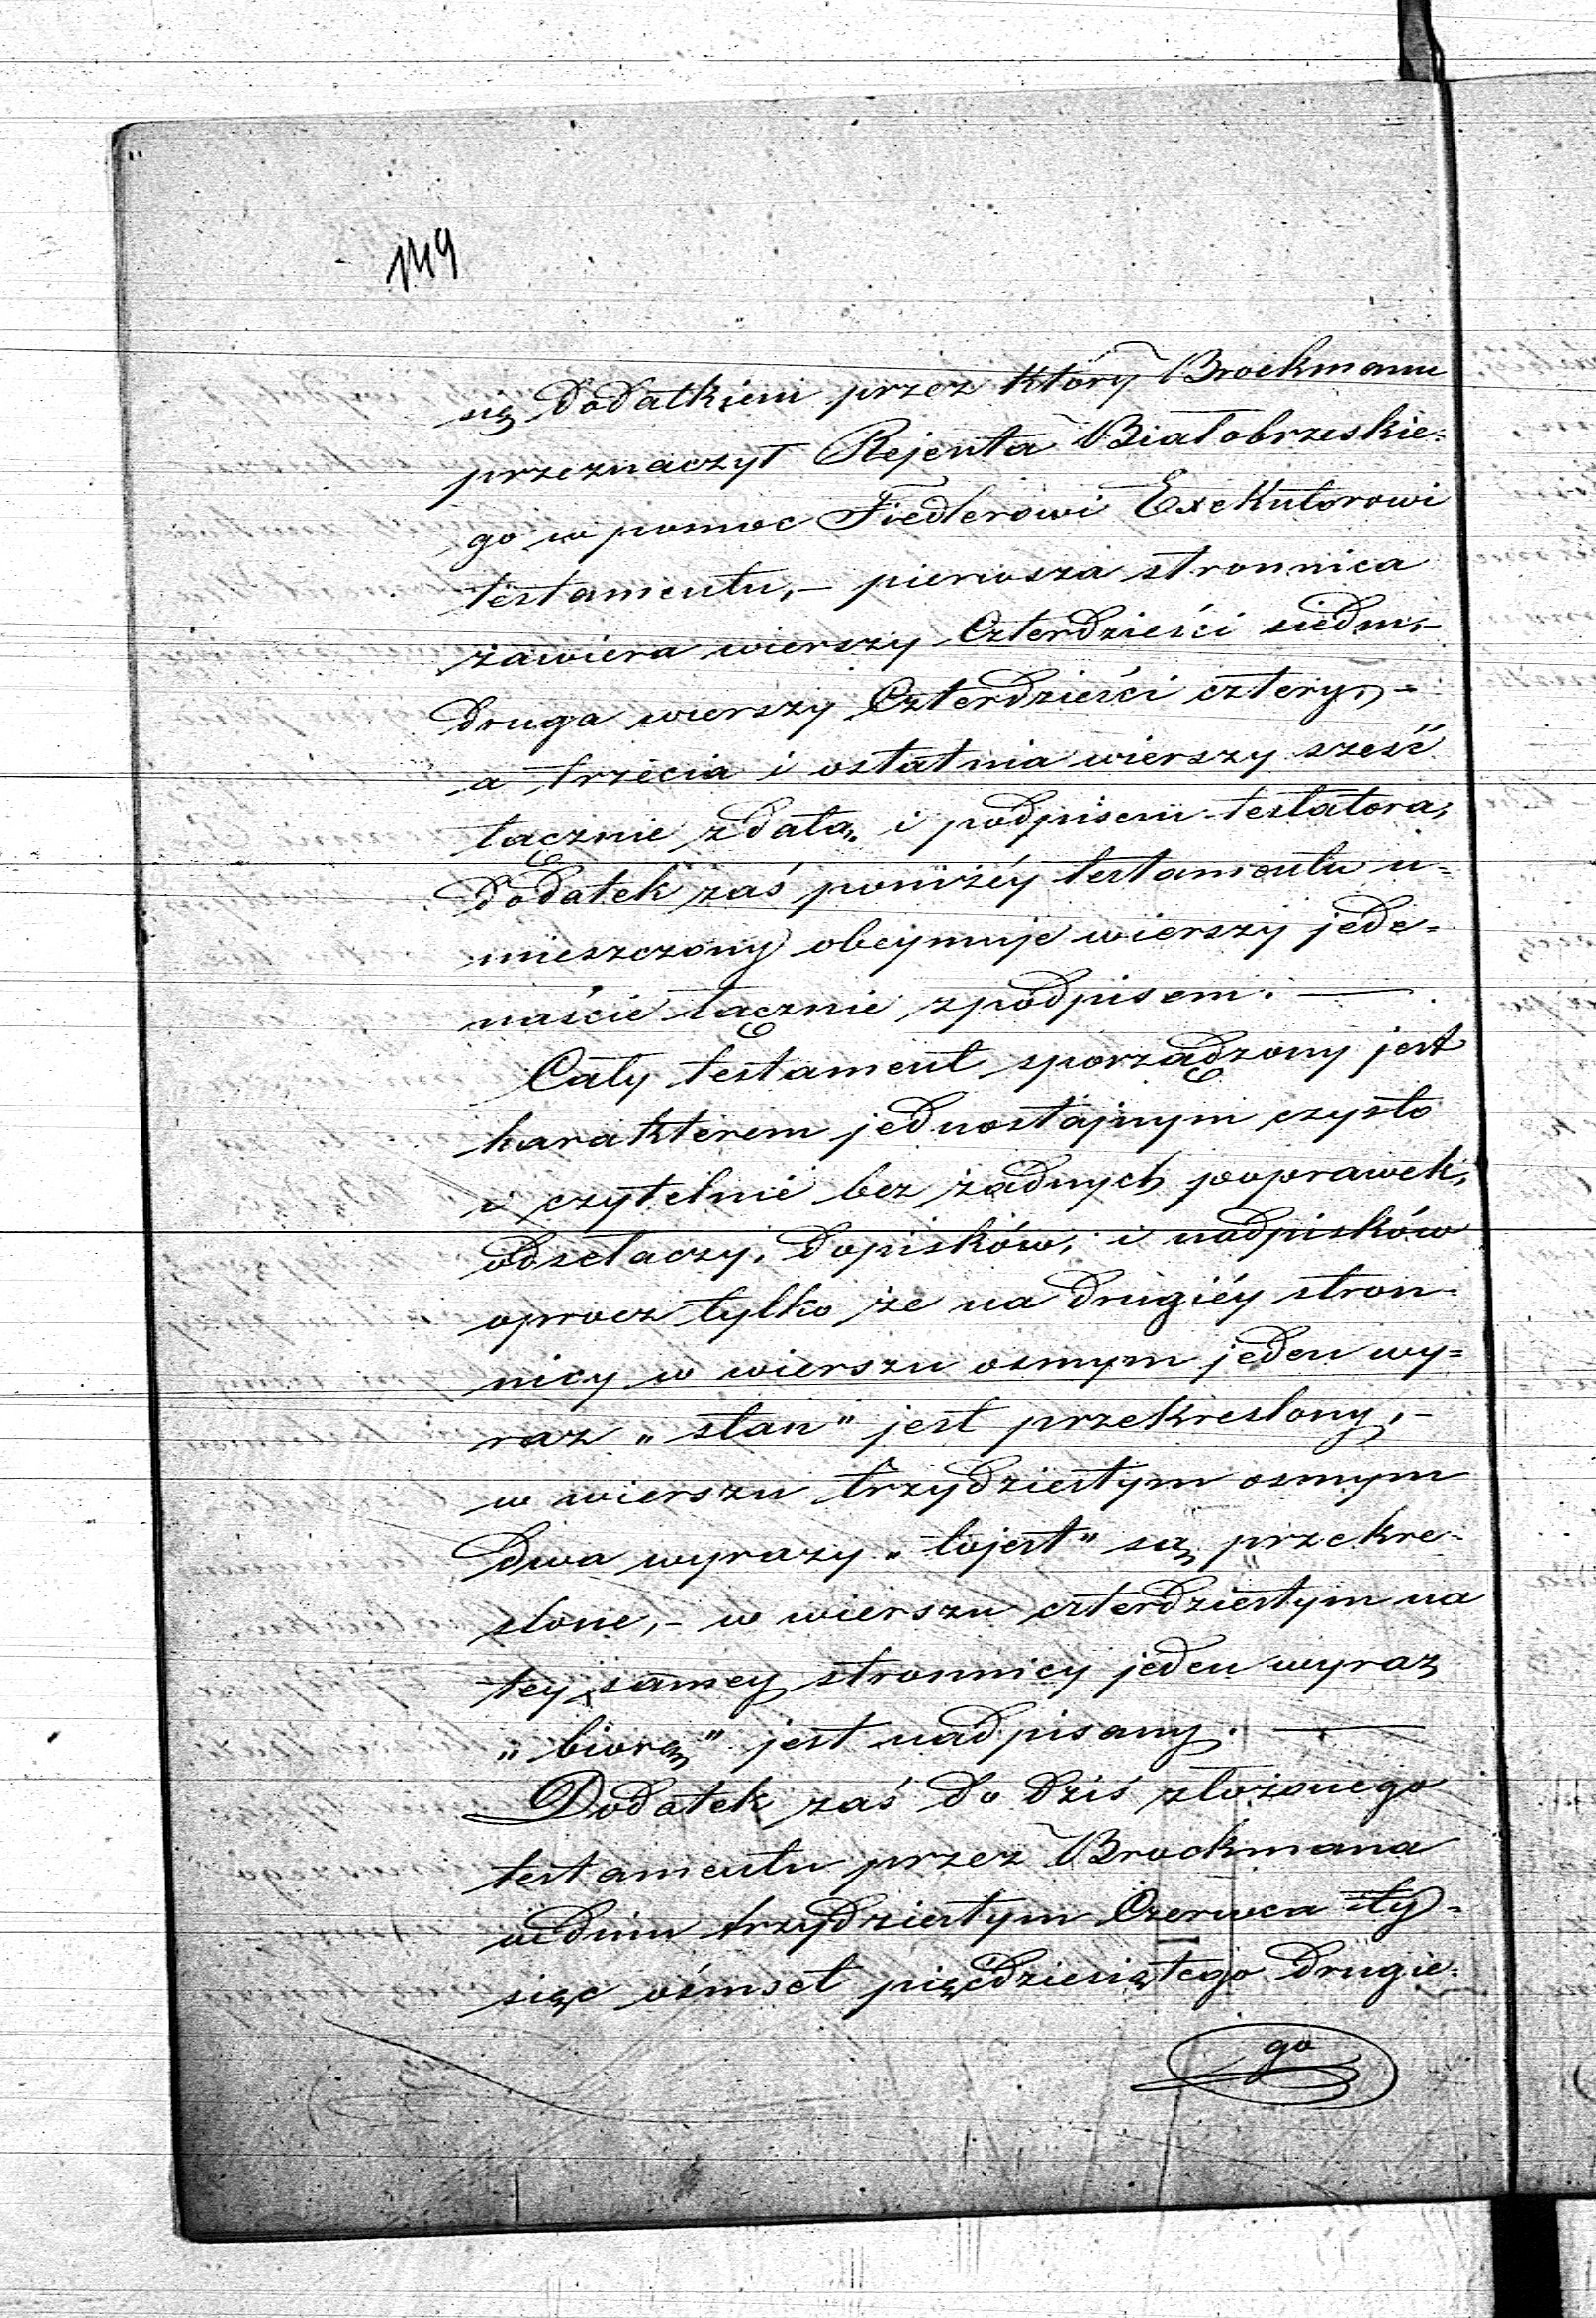 149
się dodatkiem przez który Brockmann
przeznaczył Rejenta Białobrzeskie=
go w pomoc Fiedlerowi Exekutorowi
testamentu,— pierwsza stronnica
zawiera wierszy Czterdzieści siedm,—
druga wierszy Czterdzieści cztery,—
a trzecia i ostatnia wierszy sześć
łącznie z datą, i podpisem testatora,
dodatek zaś poniżéy testamentu u=
mieszczony obeymuje wierszy jede=
naście łącznie z podpisem. —
Cały testament sporządzony jest
harakterem jednostajnym czysto
i czytelnie bez żadnych poprawek,
odsełaczy, dopisków, i nadpisków
oprocz tylko że na drugiéy stron=
nicy w wierszu osmym jeden wy=
raz „stan" jest przekreslony,—
w wierszu trzydziestym osmym
dwa wyrazy „tojest" są przekre=
slone,— w wierszu czterdziestym na
tey samey stronnicy jeden wyraz
„biorą" jest nadpisany. —
Dodatek zaś do dziś złożonego
testamentu przez Brockmana
w dniu trzydziestym Czerwca ty=
siąc ośmset pięćdziesiątego drugie=
go